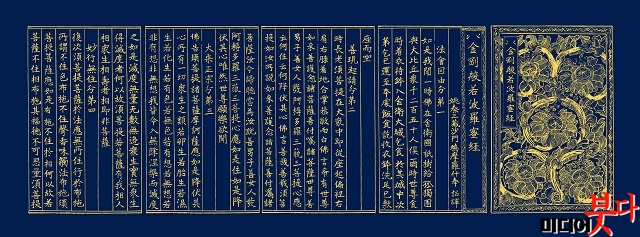 金剛般若波羅蜜經
金剛般若波羅蜜經
姚秦三藏沙門鳩摩羅什奉 詔譯
法會因由分第一
如是我聞一時佛在舍衛國祇樹給孤獨園
與大比丘衆千二百五十人俱爾時世尊食
時着衣持鉢入舍衛大城乞食於其城中次
第乞已還至本處飯食訖收衣鉢洗足已敷
座而坐
善現起請分第二
時長老須菩提在大衆中卽從座起偏袒右
肩右膝着地合掌恭敬而白佛言希有世尊
如來善護念諸菩薩善付囑諸菩薩世尊善
男子善女人發阿耨多羅三藐三菩提心應
云何住云何降伏其心佛言善哉善哉須菩
提如汝所說如來善護念諸菩薩善付囑諸
菩薩汝今諦聽當爲汝說善男子善女人發
阿耨多羅三藐三菩提心應如是住如是降
伏其心唯然世尊願樂欲聞
大乘正宗分第三
佛告須菩提諸菩薩摩訶薩應如是降伏其
心所有一切衆生之類若卵生若胎生若濕
生若化生若有色若無色若有想若無想若
非有想非無想我皆令入無餘涅槃而滅度
之如是滅度無量無數無邊衆生實無衆生
得滅度者何以故須菩提若菩薩有我相人
相衆生相壽者相卽非菩薩
妙行無住分第四
復次須菩提菩薩於法應無所住行於布施
所謂不住色布施不住聲香味觸法布施須
菩提菩薩應如是布施不住於相何以故若
菩薩不住相布施其福德不可思量須菩提
미디어붓다